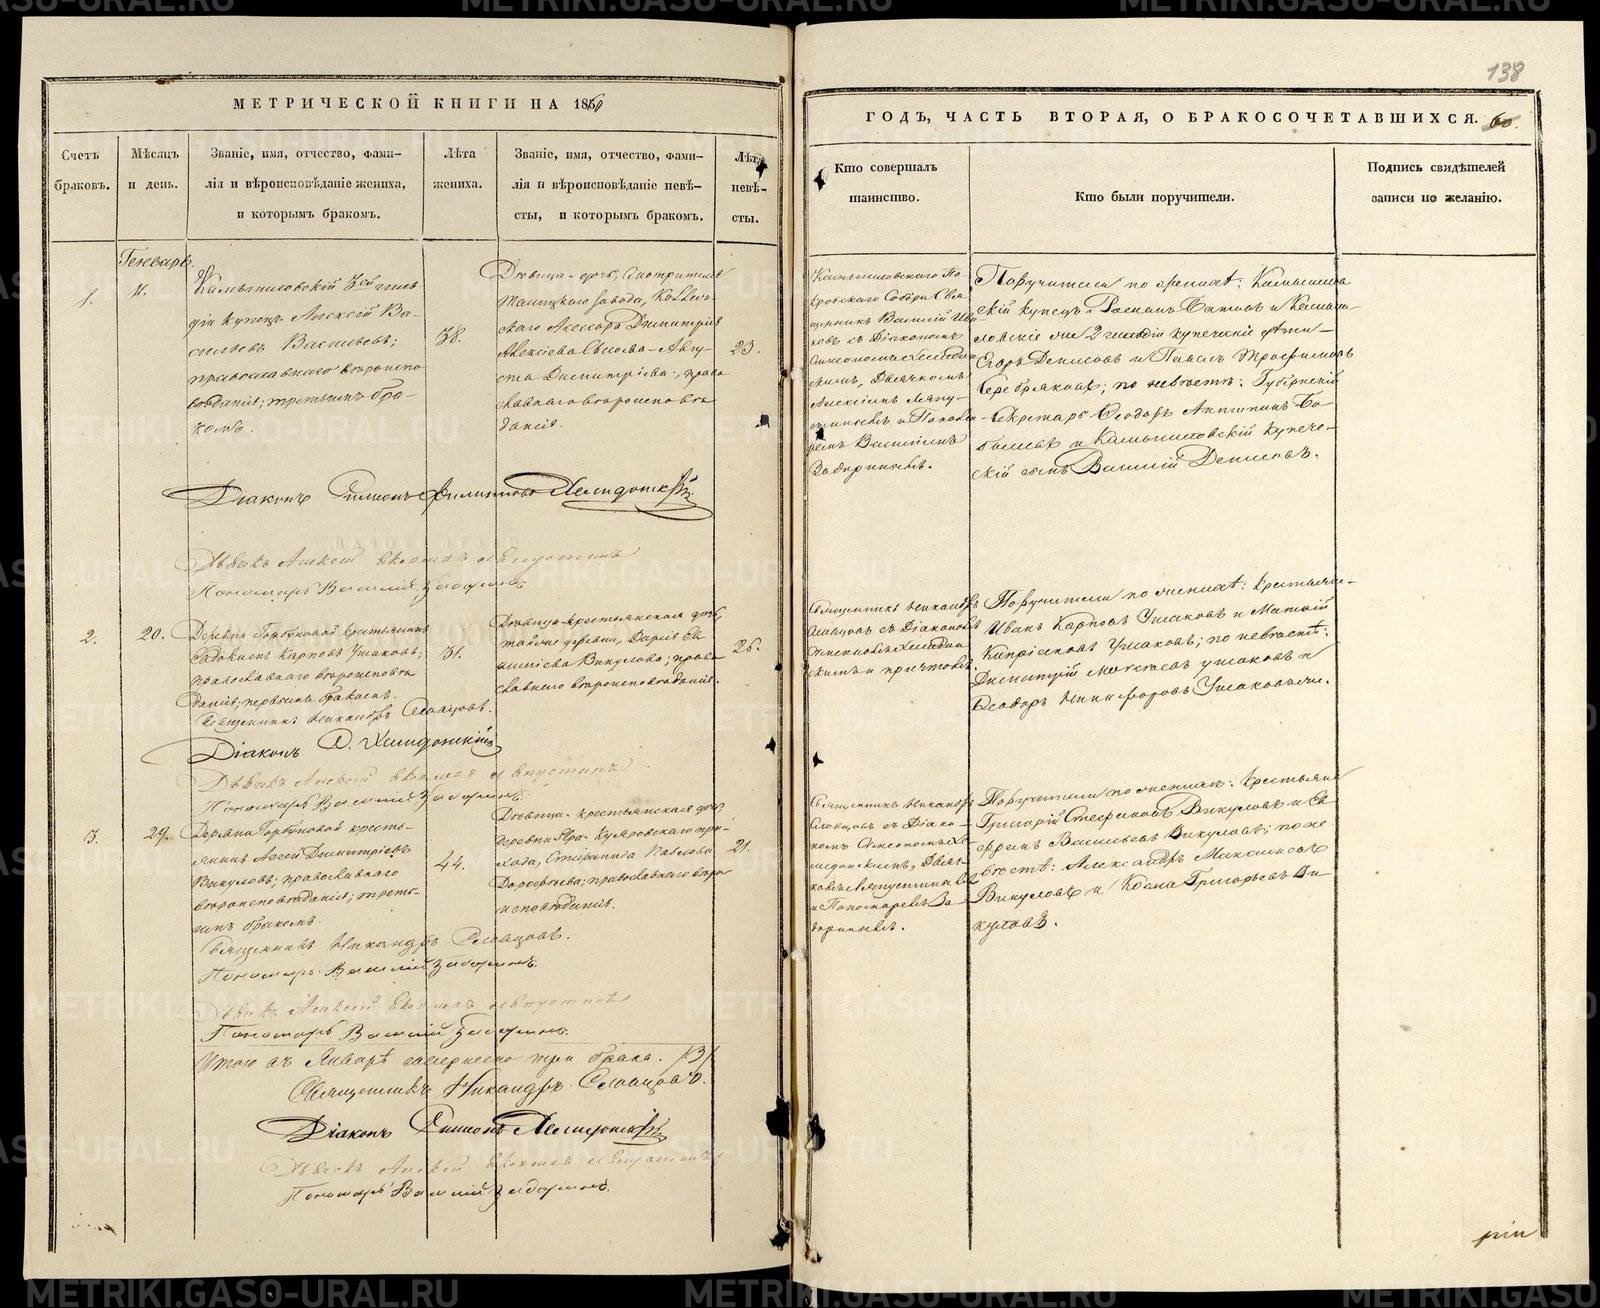 138
МЕТРИЧЕСКОЙ КНИГИ НА 1860
ГОДЪ, ЧАСТЬ ВТОРАЯ, О БРАКОСОЧЕТАВШИХСЯ.
60.
Счетъ
браковъ.
Мѣсяцъ
и день.
Званіе, имя, отчество, фами-
лія и вѣроисповѣданіе жениха,
и которымъ бракомъ.
Лѣта
жениха.
Званіе, имя, отчество, фами-
лія и вѣроисповѣданіе невѣ-
сты, и которымъ бракомъ.
Лѣта
невѣ-
сты.
Кто совершалъ
таинство.
Кто были поручители.
Подпись свидѣтелей
записи по желанію.
Генварь.
1.
11.
Камышловскій 3ей гиль
діи купецъ Алексѣй Ва-
сильевъ Васильевъ;
православнаго вѣроиспо
вѣданія; третьимъ бра-
комъ.
38.
Дѣвица-дочь, Смотрителя
Талицкаго завода, Коллеж-
скаго Асессора Димитрія
Алексѣева Авгу-
ста Димитріева, право
славнаго вѣроисповѣ
данія.
23.
Камышловскаго По-
кровскаго Собора Свя
щенникъ Василій
ковъ съ Діакономъ
Симеономъ Хелидон
скимъ, Дьячкомъ
Алексѣемъ
и Понома
ремъ Василіемъ
Поручители по женихѣ: Камышлов
скій купецъ Романъ и Камыш
ловскіе 2 гильдіи купеческіе дѣти
Егоръ Денисовъ и Павелъ Трофимовъ
Серебряковъ; по невѣстѣ: Губернскій
Секретарь Ѳеодоръ Антипинъ Ба
и Камышловскій купече-
скій сынъ Василій Денисовъ.
Діаконъ Симеонъ Филипповъ Хелидонскій
Дьячекъ Алексѣй
Пономарь Василій
2.
20.
Деревни Горбуновой крестьянинъ
Евдокимъ Карповъ Ушаковъ;
православнаго вѣроисповѣ
данія; первымъ бракомъ.
31.
Дѣвица крестьянская дочь,
той же деревни, Дарія Ев
Викулова; право
славнаго вѣроисповѣданія.
26.
Священникъ Никандръ
Словцовъ съ Діакономъ
Симеономъ Хелидон
скимъ и причтомъ.
Поручители по женихѣ: крестьяне
Иванъ Карповъ Ушаковъ и Матвій
Кипріяновъ Ушаковъ; по невѣстѣ:
Димитрій Ушаковъ и
Ѳеодоръ Никифоровъ Ушаковы.
Священникъ Никандръ Словцовъ.
Діаконъ С. Хелидонскій
Дьячекъ Алексѣй
Пономарь Василій
3.
29.
Деревни Горбуновой кресть-
янинъ Аггей Димитріевъ
Викуловъ; православнаго
вѣроисповѣданія; треть-
имъ бракомъ.
44.
Дѣвица, крестьянская дочь
деревни Яра Куяровскаго при-
хода, Степанида Павлова
Дорофѣева; православнаго вѣро
исповѣданія.
21.
Священникъ Никандръ
Словцовъ съ Діако-
номъ Симеономъ Хе
лидонскимъ, Дьяч-
комъ
и Пономаремъ
Поручители по женихѣ: крестьяне
Григорій Стефановъ Викуловъ и Еѳ
Васильевъ Викуловъ; по не
вѣстѣ: Александръ Максимовъ
Викуловъ и Косма Григорьевъ Ви-
куловъ.
Священникъ Никандръ Словцовъ.
Пономарь Василій
Дьячекъ Алексѣй
Пономарь Василій
Итого въ Январѣ совершено три брака. /3/
Священникъ Никандръ Словцовъ.
Діаконъ Симеонъ Хелидонскій
Дьячекъ Алексѣй
Пономарь Василій
METRIKI.GASO-URAL.RU